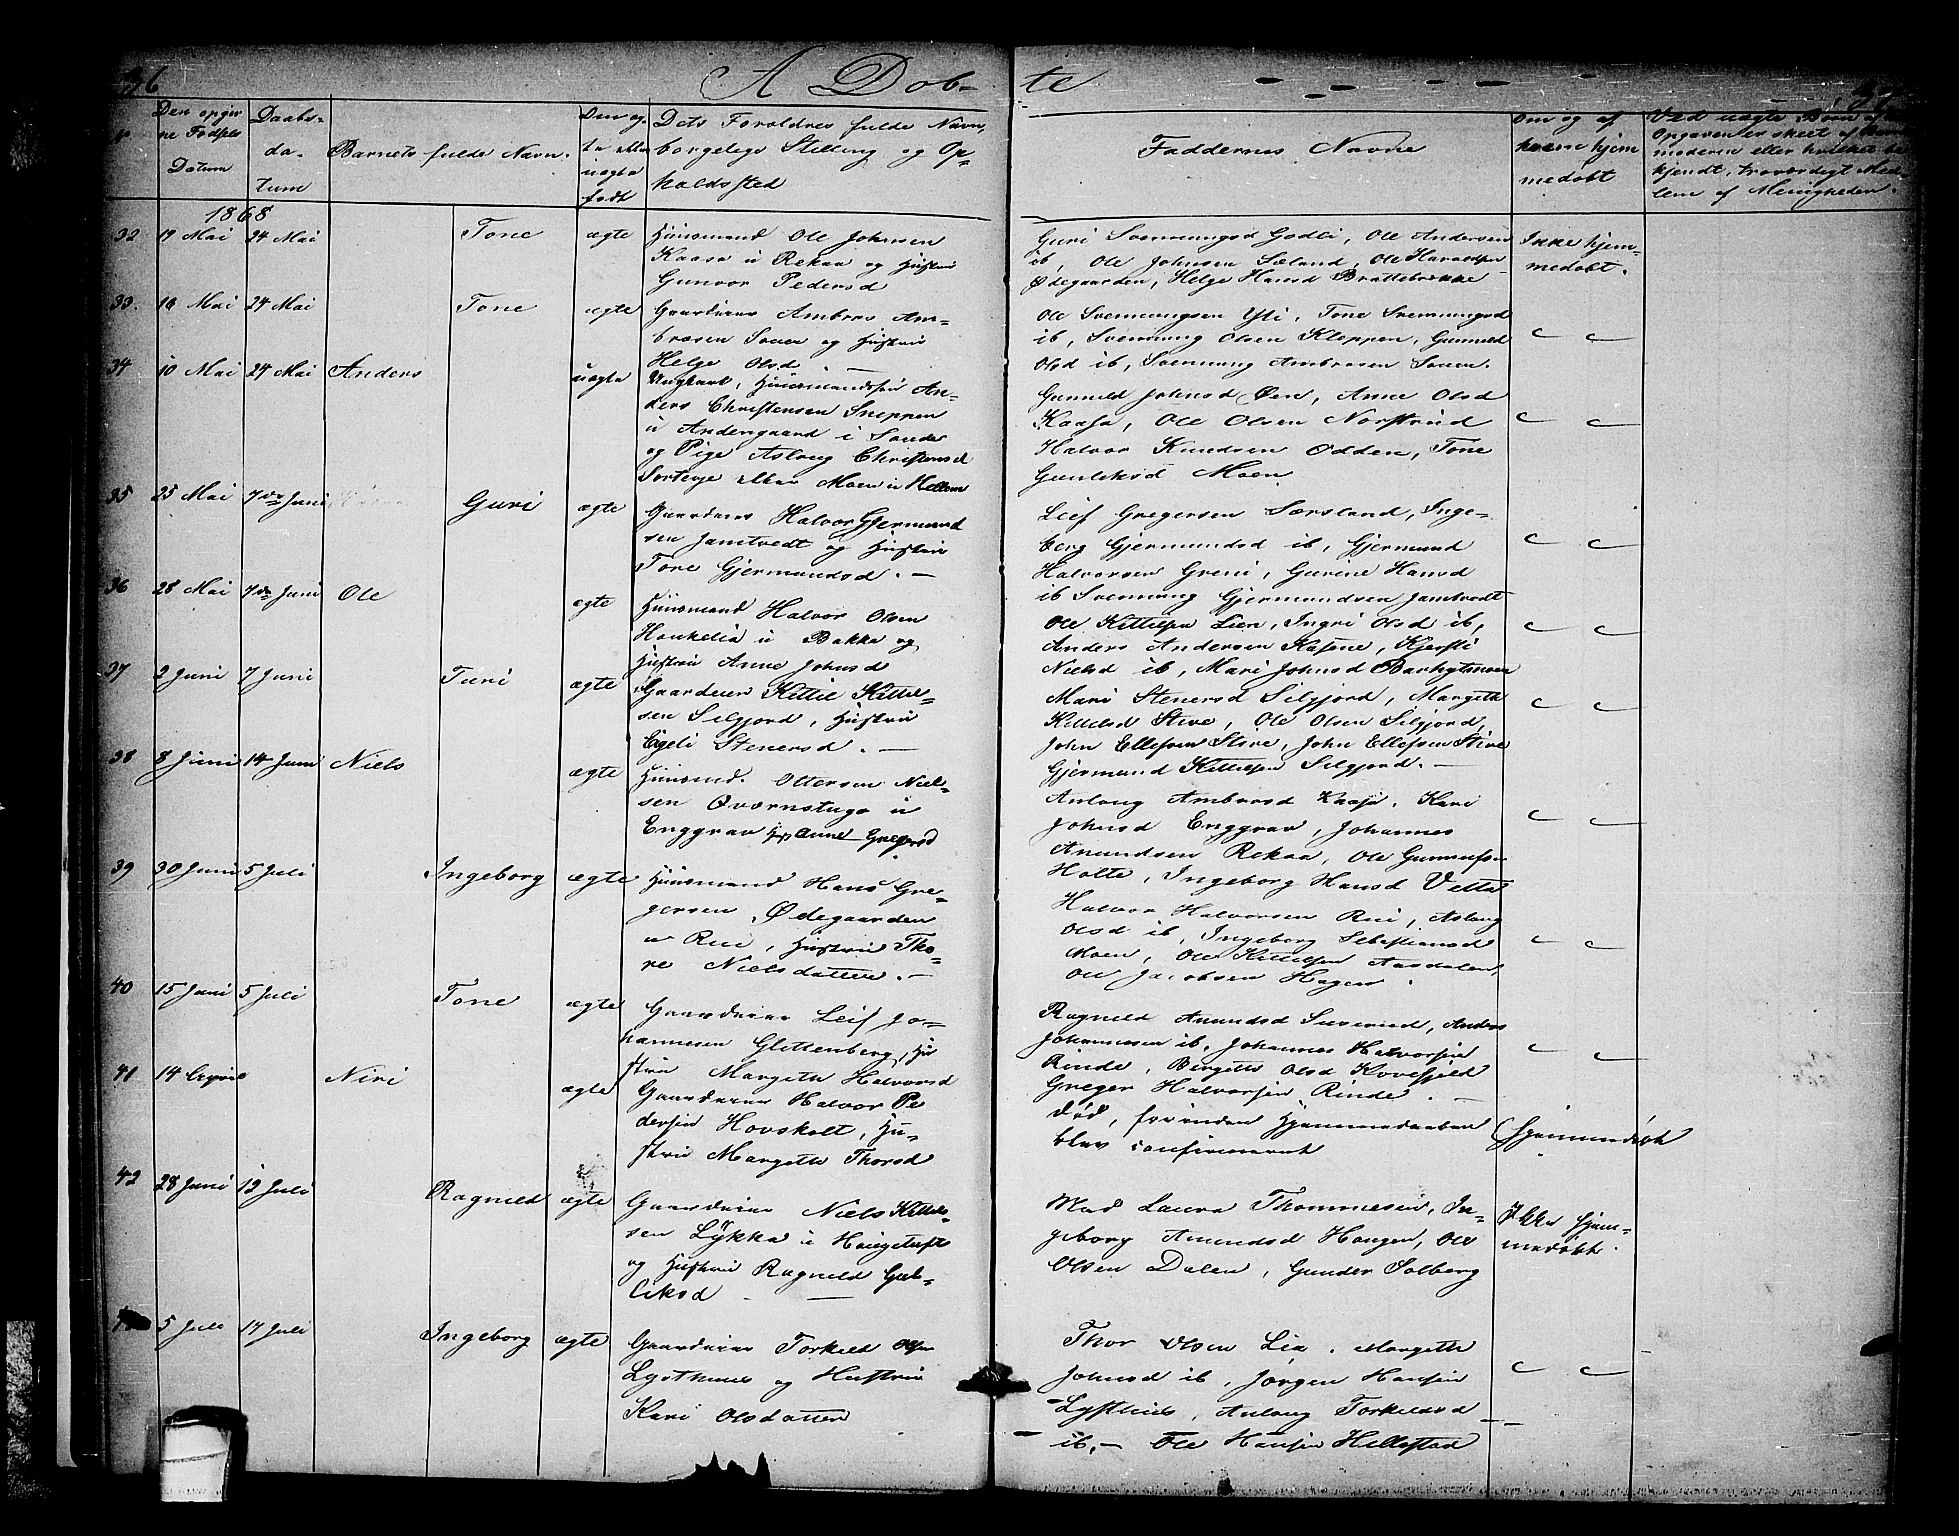 36
A Døb-
te
Den opgiv-
ne Fødsels
Datum
Daabs-
da-
tum
Barnets fulde Navn.
Den æg-
te eller
uægte
født
Dets Forældres fulde Navn,
borgelige Stilling og Op-
holdssted
Faddernes Navne
Om og af
hvem hjem
medøbt
Ved uægte Børn
Opgaven er skeet af
moderen eller hvilket be
kjendt, troværdigt Med-
lem af Menigheden.
1868
32 19 Mai 24 Mai Tone ægte Huusmand Ole Johnsen
Kaasa u Rekaa og Hustru
Gunvor Pedersd
Guri Svennungsd Godli, Ole Andersen
ib, Ole Johnsen Sæland, Ole Haraldsen
Ødegaarden, Helge Hansd Brattebrække
Ikke hjem-
medøbt.
33. 10 Mai 24 Mai Tone ægte Gaardeier Ambros Am-
brosen Sauer og Hustru
Helge Olsd
Ole Svennungsen Yli, Tone Svennungsd
ib, Svennung Olsen Kleppen, Gunnild
Olsd ib, Svennung Ambrosen Sauer.
34 10 Mai 24 Mai Anders uægte Ungkarl, Huusmandssøn An-
ders Christensen Sneppen
u Andengaard i Saude
og Pige Aslaug Christensd
Sorteye eller Moen u Hellem
Gunnild Johnsd Øen, Anne Olsd
Kaasa, Ole Olsen Norstrud
Halvor Knudsen Odden, Tone
Gunleksd Moen
35 25 Mai 7de Juni Guri ægte Gaardeier Halvor Gjermund
sen Jamtvedt og Hustru
Tore Gjermundsd. —
Lief Gregersen Særsland, Inge-
borg Gjermundsd ib, Gjermund
Halvorsen Greni, Gurine Hansd
ib Svennung Gjermundsen Jamtvedt
36 28 Mai 7de Juni Ole ægte Huusmand Halvor Olsen
Haukelia u Bakka og
Hustru Anne Johnsd
Ole Kittilsen Lien, Ingri Olsd ib,
Anders Andersen Kasine, Kjersti
Nielsd ib, Mari Johnsd Barhytmoen
37 2 Juni 7 Juni Turi ægte Gaardeier Kittil Kittel-
sen Selgjord, Hustru
Egeli Stenersd. —
Mari Stenersd Selgjord, Margith
Kittelsd Stive, Ole Olsen Selgjord,
John Ellefsen Stive, John Ellefsen Stive
Gjermund Kittilsen Selgjord. —
38 8 Juni 14 Juni Niels ægte Huusmd. Otter Niel-
sen Qværnstugo u
Enggrav Hu Anne Gregersd
Aslaug Ambrosd Kaasa. Kari
Johnsd Enggrav, Johannes
Amundsen Rekaa, Ole Gunnulfsen
Holte, Ingeborg Hansd Vetta
39 30 Juni 5 Juli Ingeborg ægte Huusmand Hans Gre-
gersen, Ødegaarden
u Rui, Hustru Tho-
re Nielsdatter. —
Halvor Halvorsen Rui, Aslaug
Olsd ib, Ingeborg Sebastiansd
Moen, Ole Kittilsen Aasdalen,
Ole Jacobsen Hagen.
40 15 Juni 5 Juli Tone ægte Gaardeier Leif Jo-
hannesen Glittenberg, Hu
stru Margith Halvorsd
Ragnild Amundsd Siverud, Anders
Johannesen ib, Johannes Halvorsen
Rinde, Birgette Olsd Kovefjeld
Greger Halvorsen Rinde. —
41 14 April Niri ægte Gaardeier Halvor Pe
dersen Hovskolt, Hu-
stru Margith Thorsd
død, forinden Hjemmedaaben
blev confirmeret
Hjemmedøbt
42 28 Juni 12 Juli Ragnild ægte Gaardeier Niels Kittel-
sen Lykka u Haugetuft
og Hustru Ragnild Gul-
liksd —
Mad Laura Thommesen, In-
geborg Amundsd Haugen, Ole
Olsen Dalen, Gunder Solberg
Ikke hjem-
medøbt.
5 Juli 14 Juli Ingeborg ægte Gaardeier Torkild Olsen
Lysthuus og Hustru
Kari Olsdatter
Thor Olsen Lia. Margith
Johnsd ib, Jørgen Hansen
Lysthuus, Aslaug Torkildsd
ib, — Ole Hansen Hellestad